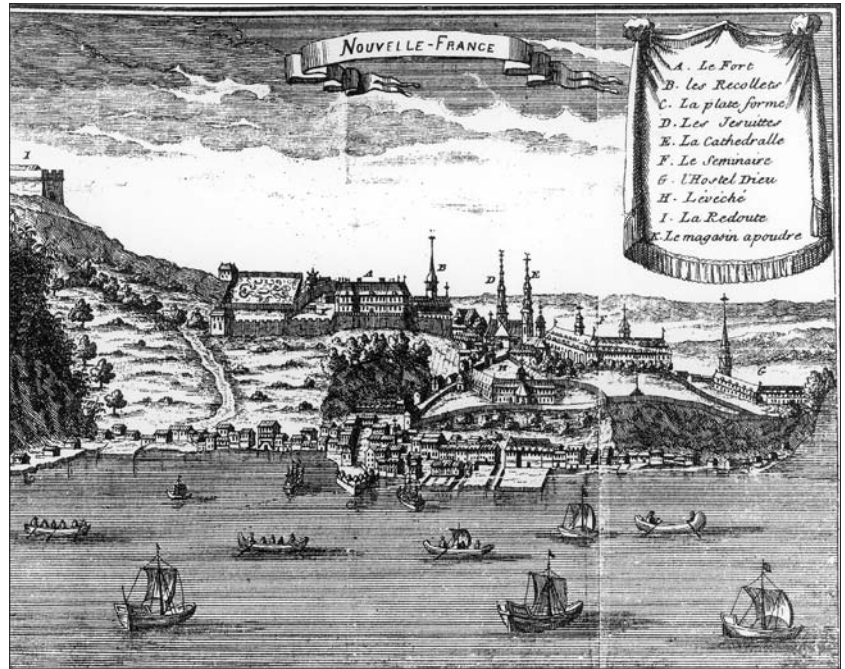 NOUVELLE-FRANCE
A. Le Fort
B. les Recollets
C. La plate forme
D. Les Jesuittes
E. La Cathedralle
F. Le Seminaire
G. l'Hostel Dieu
H. Lévéché
I. La Redoute
K. Le magasin a poudre
I
A
B
D
E
F
H
G